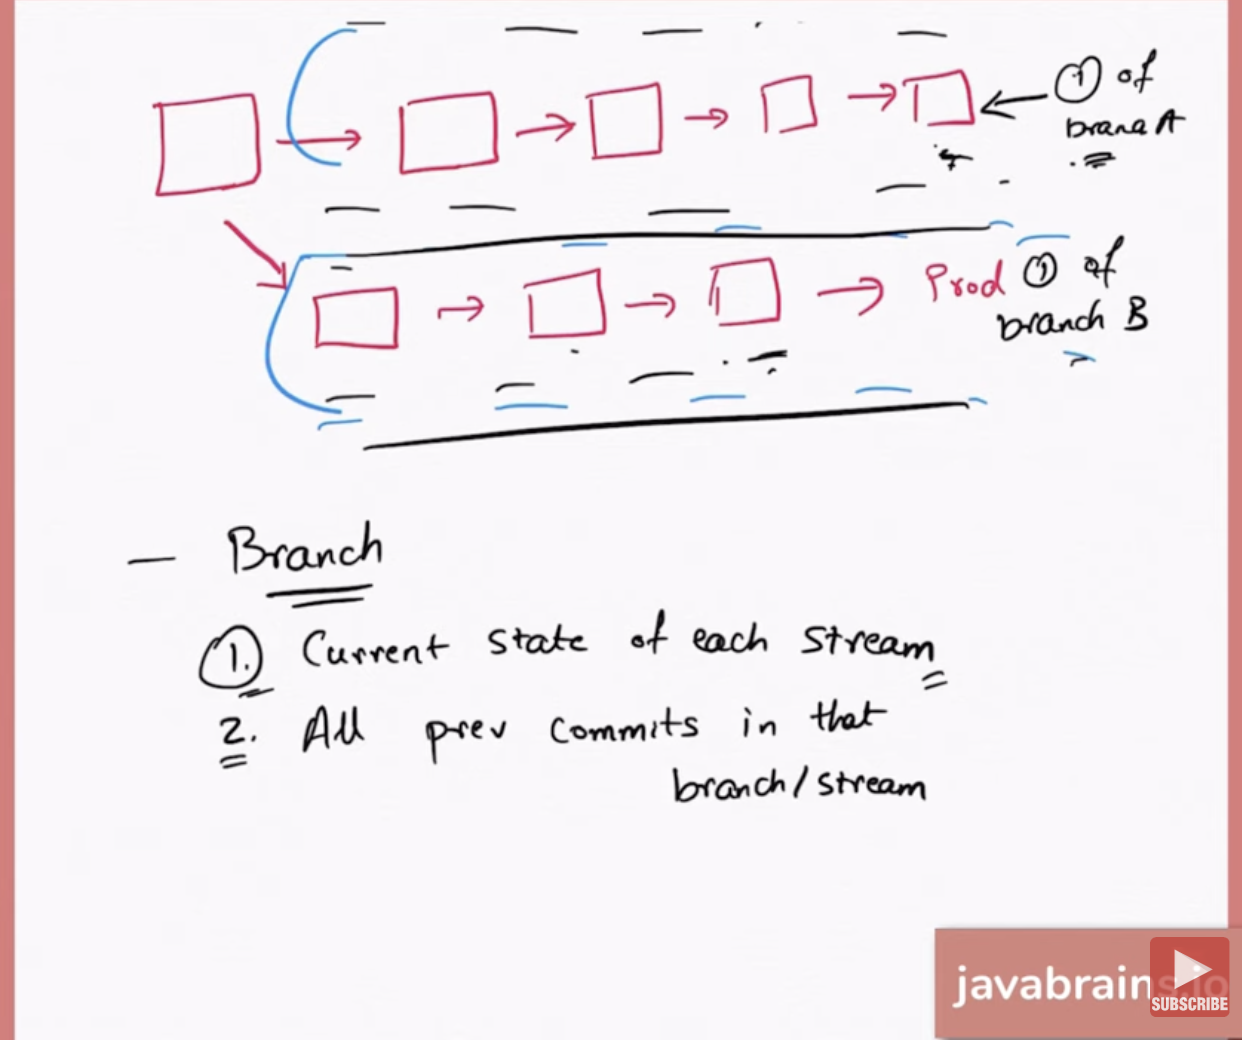 ① of
brana A
Prod ① of
branch B
— Branch
①. Current state of each stream
2. All prev commits in that
branch/stream
javabrains.io
SUBSCRIBE